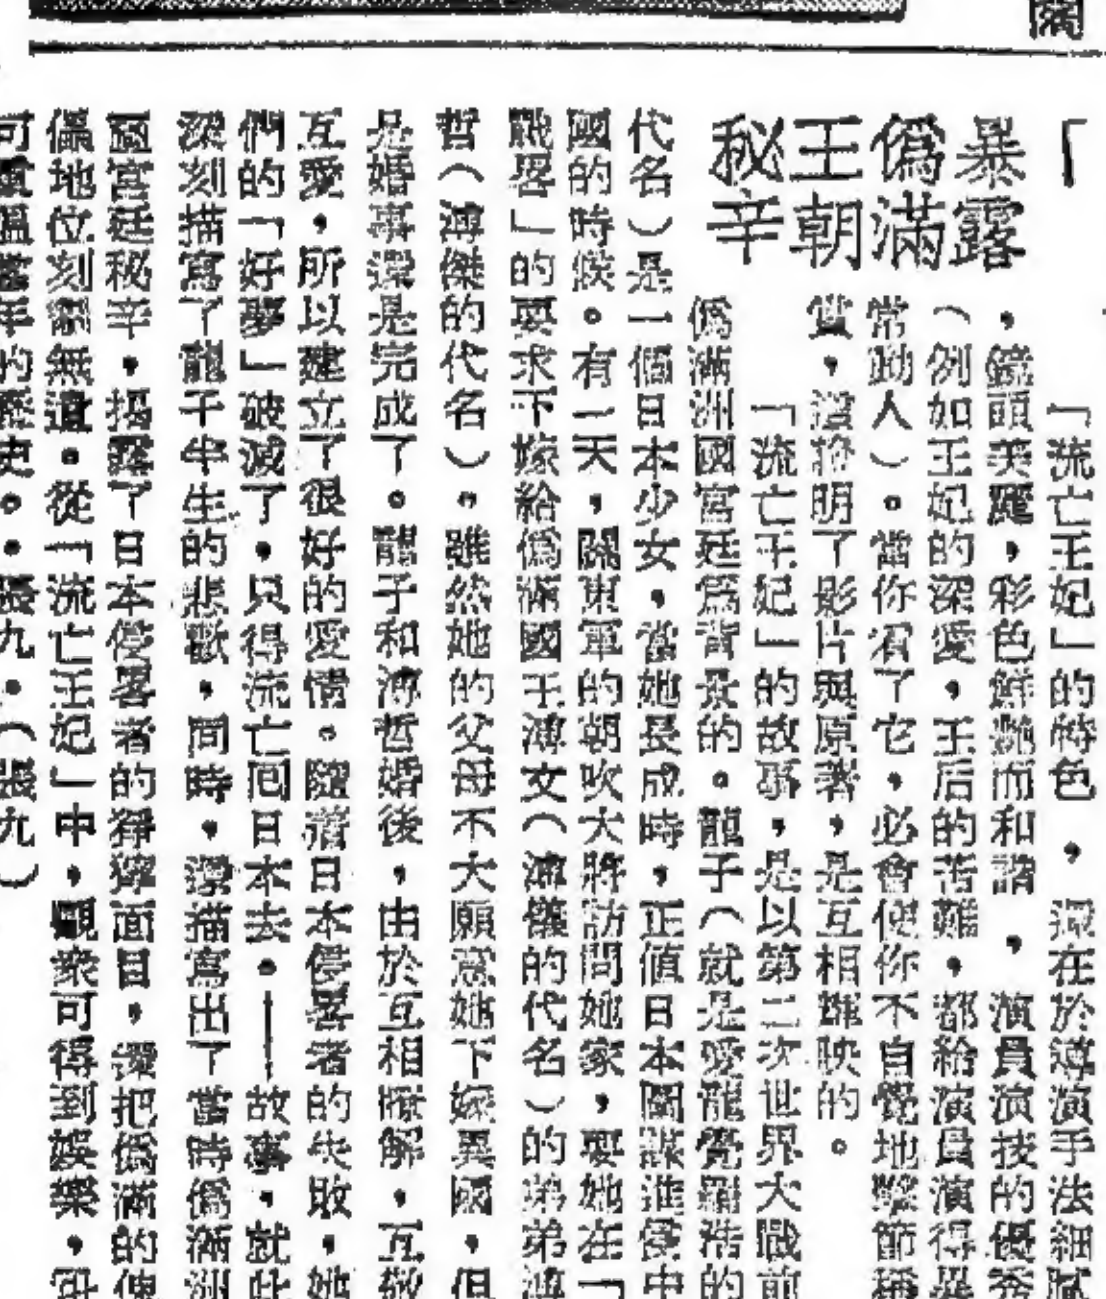 闊
「
暴露
偽滿
王朝
秘辛
「流亡王妃」的特色，還在於導演手法細膩
，鏡頭美麗，彩色鮮艷而和諧，演員演技的優秀
（例如王妃的深愛，王后的苦難，都給演員演得異
常動人）。當你看了它，必會使你不自覺地擊節稱
賞，證明了影片與原著，是互相輝映的。
「流亡王妃」的故事，是以第二次世界大戰前
偽滿洲國宮廷為背景的。龍子（就是愛龍覺羅浩的
代名）是一個日本少女，當她長成時，正值日本圖謀進侵中
國的時候。有一天，關東軍的朝吹大將訪問她家，要她在「
戰畧」的要求下嫁給偽滿國王溥文（溥儀的代名）的弟弟溥
哲（溥傑的代名）。雖然她的父母不大願意她下嫁異國，但
是婚事還是完成了。龍子和溥哲婚後，由於互相瞭解，互敬
互愛，所以建立了很好的愛情。隨着日本侵畧者的失敗，她
們的「好夢」破滅了，只得流亡回日本去。——故事，就此
深刻描寫了龍子半生的悲歡，同時，還描寫出了當時偽滿洲
國宮廷秘辛，揭露了日本侵畧者的猙獰面目，還把偽滿的傀
儡地位刻劃無遺。從「流亡王妃」中，觀衆可得到娛樂，毋
可重溫當年的歷史。・張九・（張九）